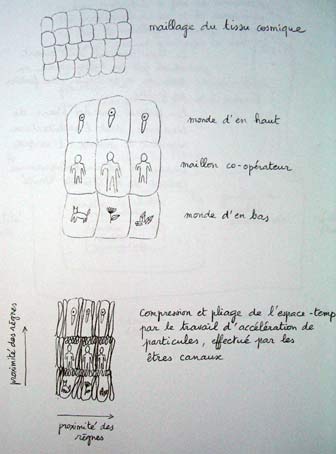 maillage du tissu cosmique
monde d'en haut
maillon co-opérateur
monde d'en bas
Compression et pliage de l'espace-temp
par le travail d'accélération de
particules, effectué par les
êtres canaux
proximité des règnes
proximité des
règnes